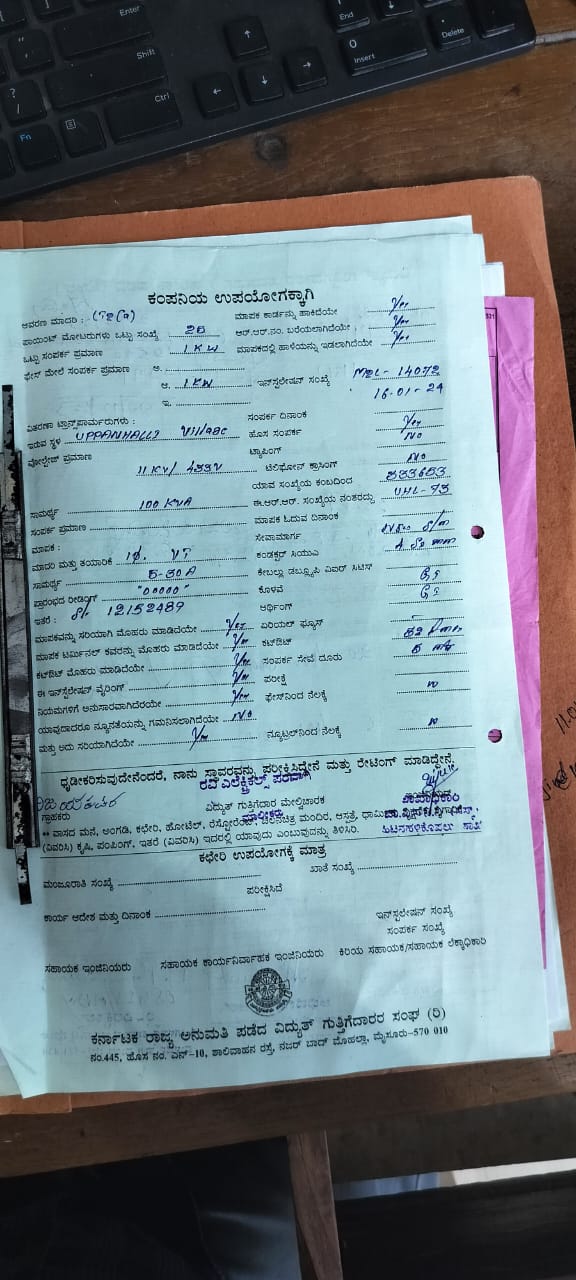 Enter
Shift
Ctrl
Fn
End
0
Insert
Delete
ಕಂಪನಿಯ ಉಪಯೋಗಕ್ಕಾಗಿ
ಆವರಣ ಮಾದರಿ :
ಮಾಪಕ ಕಾರ್ಡನ್ನು ಹಾಕಿದೆಯೇ Yes
ಪಾಯಿಂಟ್ ಮೋಟರುಗಳು ಒಟ್ಟು ಸಂಖ್ಯೆ
ಆರ್.ಆರ್.ನಂ. ಬರೆಯಲಾಗಿದೆಯೇ Yes
ಒಟ್ಟು ಸಂಪರ್ಕ ಪ್ರಮಾಣ 1 KW
ಮಾಪಕದಲ್ಲಿ ಹಾಳೆಯನ್ನು ಇಡಲಾಗಿದೆಯೇ Yes
ಫೇಸ್ ಮೇಲೆ ಸಂಪರ್ಕ ಪ್ರಮಾಣ ಅ.
ಆ. 1 KW
ಇನ್‌ಸ್ಟಲೇಷನ್ ಸಂಖ್ಯೆ M2L- 14072
ಇ.
16-01-24
ವಿತರಣಾ ಟ್ರಾನ್ಸ್‌ಫಾರ್ಮರುಗಳು :
ಸಂಪರ್ಕ ದಿನಾಂಕ
ಇರುವ ಸ್ಥಳ UPPANHALLI Village
ಹೊಸ ಸಂಪರ್ಕ Yes
ವೋಲ್ಟೇಜ್ ಪ್ರಮಾಣ 11 KV/ 433V
ಟ್ಯಾಪಿಂಗ್ No
ಟೆಲಿಫೋನ್ ಕ್ರಾಸಿಂಗ್ No
ಸಾಮರ್ಥ್ಯ 100 KVA
ಯಾವ ಸಂಖ್ಯೆಯ ಕಂಬದಿಂದ
ಸಂಪರ್ಕ ಪ್ರಮಾಣ
ಈ.ಆರ್.ಆರ್. ಸಂಖ್ಯೆಯ ನಂತರದ್ದು UHL-93
ಮಾಪಕ :
ಮಾಪಕ ಓದುವ ದಿನಾಂಕ
ಮಾದರಿ ಮತ್ತು ತಯಾರಿಕೆ 1φ.
ಸೇವಾಮಾರ್ಗ
ಸಾಮರ್ಥ್ಯ 5-30A
ಕಂಡಕ್ಟರ್ ಸಿಯುಎ
ಪ್ರಾರಂಭದ ರೀಡಿಂಗ್ "00000"
ಕೇಬಲ್ಲು ಡಬ್ಲ್ಯೂಪಿ ಏಐರ್ ಸಿಟಿಸ್
ಇತರೆ : 12152489
ಕೊಳವೆ
ಅರ್ಥಿಂಗ್
ಮಾಪಕವನ್ನು ಸರಿಯಾಗಿ ಮೊಹರು ಮಾಡಿದೆಯೇ Yes
ಏರಿಯಲ್ ಫ್ಯೂಸ್
ಮಾಪಕ ಟರ್ಮಿನಲ್ ಕವರನ್ನು ಮೊಹರು ಮಾಡಿದೆಯೇ Yes
ಕಟ್‌ಔಟ್
ಕಟ್‌ಔಟ್ ಮೊಹರು ಮಾಡಿದೆಯೇ Yes
ಸಂಪರ್ಕ ಸೇವೆ ದೂರು
ಈ ಇನ್‌ಸ್ಟಲೇಷನ್ ವೈರಿಂಗ್ Yes
ಪರೀಕ್ಷೆ
ನಿಯಮಗಳಿಗೆ ಅನುಸಾರವಾಗಿದೆಯೇ Yes
ಫೇಸ್‌ನಿಂದ ನೆಲಕ್ಕೆ
ಯಾವುದಾದರೂ ನ್ಯೂನತೆಯನ್ನು ಗಮನಿಸಲಾಗಿದೆಯೇ No
ಮತ್ತು ಅದು ಸರಿಯಾಗಿದೆಯೇ Yes
ನ್ಯೂಟ್ರಲ್‌ನಿಂದ ನೆಲಕ್ಕೆ
ಧೃಡೀಕರಿಸುವುದೇನೆಂದರೆ, ನಾನು ಸ್ಥಾವರವನ್ನು ಪರೀಕ್ಷಿಸಿದ್ದೇನೆ ಮತ್ತು ರೇಟಿಂಗ್ ಮಾಡಿದ್ದೇನೆ.
ರವಿ ಎಲೆಕ್ಟ್ರಿಕಲ್ಸ್ ಪರವಾಗಿ
ಗ್ರಾಹಕರು
ವಿದ್ಯುತ್ ಗುತ್ತಿಗೆದಾರ ಮೇಲ್ವಿಚಾರಕ
ಮಾಲೀಕರು
** ವಾಸದ ಮನೆ, ಅಂಗಡಿ, ಕಛೇರಿ, ಹೋಟೆಲ್, ರೆಸ್ಟೋರೆಂಟ್, ಚಲನಚಿತ್ರ ಮಂದಿರ, ಆಸ್ಪತ್ರೆ,
(ವಿವರಿಸಿ) ಕೃಷಿ, ಪಂಪಿಂಗ್, ಇತರೆ (ವಿವರಿಸಿ) ಇದರಲ್ಲಿ ಯಾವುದು ಎಂಬುವುದನ್ನು ತಿಳಿಸಿರಿ.
ಕಛೇರಿ ಉಪಯೋಗಕ್ಕೆ ಮಾತ್ರ
ಮಂಜೂರಾತಿ ಸಂಖ್ಯೆ
ಖಾತೆ ಸಂಖ್ಯೆ
ಪರೀಕ್ಷಿಸಿದೆ
ಕಾರ್ಯ ಆದೇಶ ಮತ್ತು ದಿನಾಂಕ
ಇನ್‌ಸ್ಟಲೇಷನ್ ಸಂಖ್ಯೆ
ಸಂಪರ್ಕ ಸಂಖ್ಯೆ
ಸಹಾಯಕ ಇಂಜಿನಿಯರು
ಸಹಾಯಕ ಕಾರ್ಯನಿರ್ವಾಹಕ ಇಂಜಿನಿಯರು
ಕಿರಿಯ ಸಹಾಯಕ/ಸಹಾಯಕ ಲೆಕ್ಕಾಧಿಕಾರಿ
ಕರ್ನಾಟಕ ರಾಜ್ಯ ಅನುಮತಿ ಪಡೆದ ವಿದ್ಯುತ್ ಗುತ್ತಿಗೆದಾರರ ಸಂಘ (ರಿ)
ನಂ.445, ಹೊಸ ನಂ. ಎನ್-10, ಶಾಲಿವಾಹನ ರಸ್ತೆ, ನಜರ್ ಬಾದ್ ಮೊಹಲ್ಲಾ, ಮೈಸೂರು-570 010